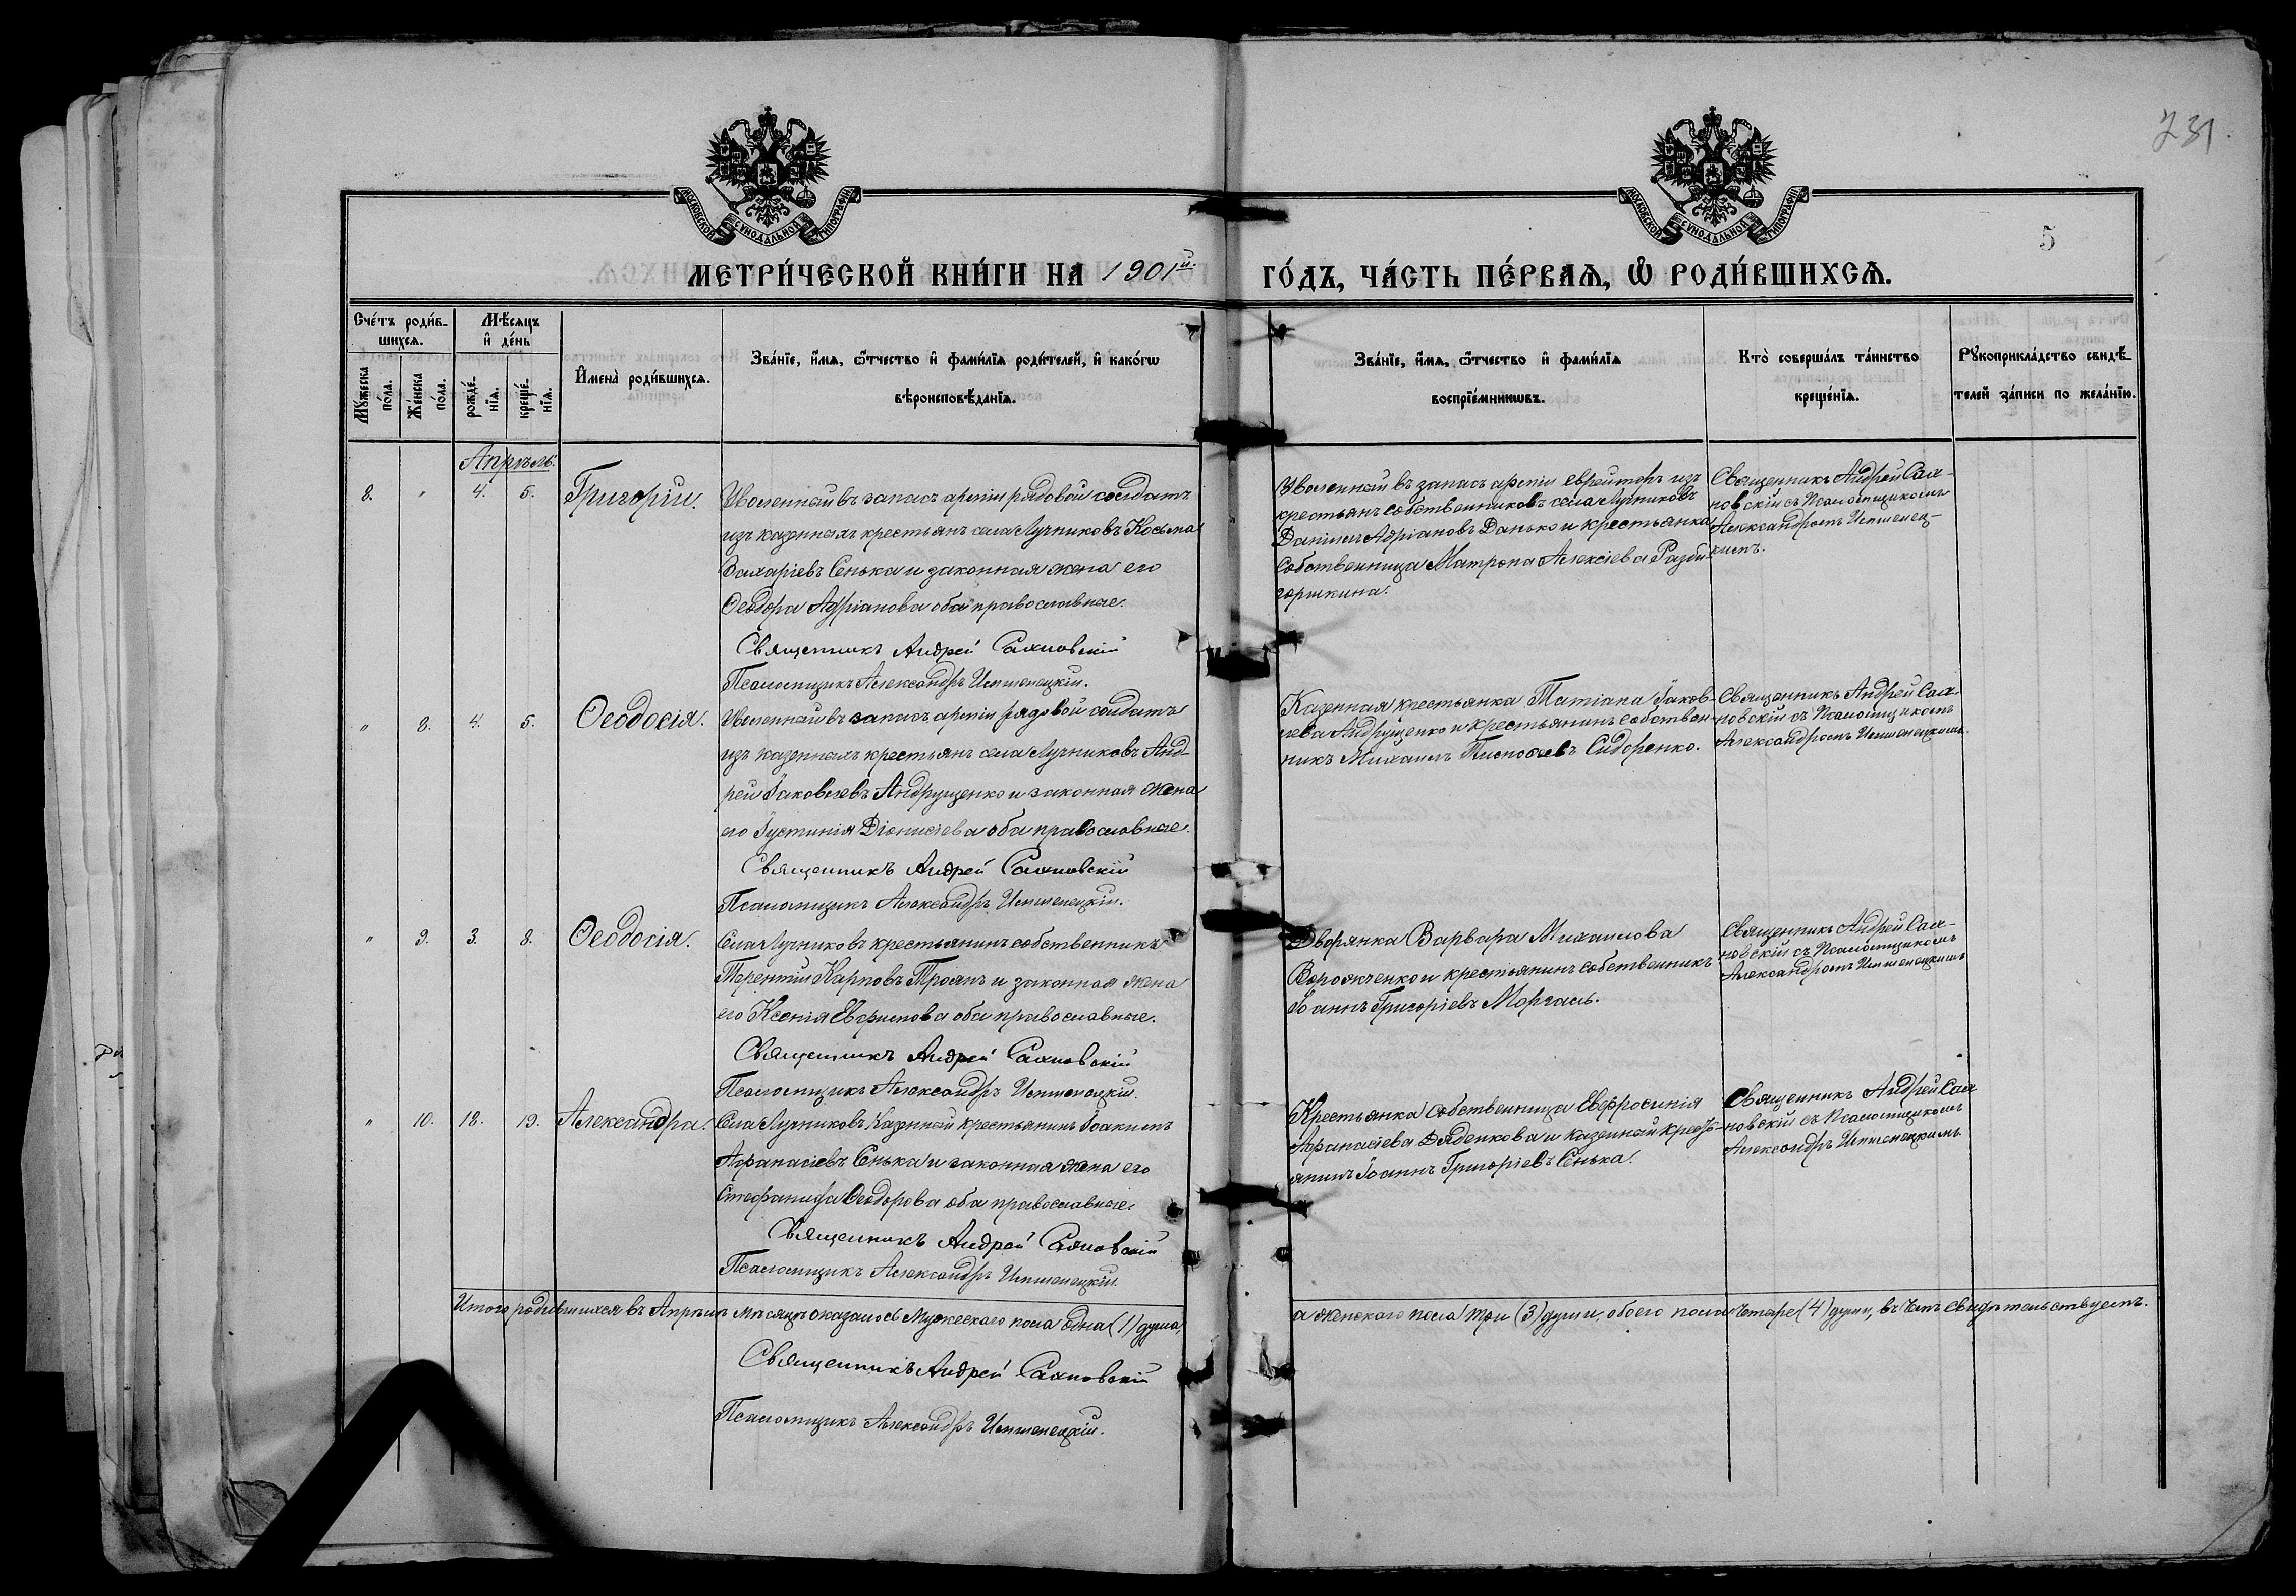 231.
5
МОСКОВСКОЙ СѴНОДАЛЬНОЙ ТИПОГРАФІИ
МОСКОВСКОЙ СѴНОДАЛЬНОЙ ТИПОГРАФІИ
МЕТРИ́ЧЕСКОЙ КНИ́ГИ НА 1901й.
ГО́ДЪ, ЧА́СТЬ ПЕ́РВАѦ, Ѡ҆ РОДИ́ВШИХСѦ.
Сче́тъ роди́в-
шихсѧ.
Мѣ́сѧцъ
и҆ де́нь
Мꙋ́жеска
по́ла.
Же́нска
по́ла.
рожде́-
нїѧ.
креще́-
нїѧ.
И҆мена̀ роди́вшихсѧ.
Зва́нїе, и҆́мѧ, ѻ҆́тчество и҆ фами́лїѧ роди́телей, и҆ како́гѡ
вѣроисповѣ́данїѧ.
Зва́нїе, и҆́мѧ, ѻ҆́тчество и҆ фами́лїѧ
воспрїе́мникѡвъ.
Кто̀ соверша́лъ та́инство
креще́нїѧ.
Рꙋкоприкла́дство свидѣ́-
телей за́писи по жела́нїю.
Апрѣль.
8. " 4. 5. Григорій.
Уволенный въ запасъ арміи рядовой солдатъ
изъ казенныхъ крестьянъ села Лучниковъ Косьма
Захаріевъ Сенька и законная жена его
Ѳеодора Адріанова оба православные.
Священникъ Андрей Сахновскій
Псаломщикъ Александръ
Уволенный въ запасъ арміи ефрейторъ изъ
крестьянъ собственниковъ села Лучниковъ
Даніилъ Адріановъ Данько и крестьянка
Собственница Матрона Алексіева Разби-
горшкина.
Священникъ Андрей Сах-
новскій съ Псаломщикомъ
Александромъ
" 8. 4. 5. Ѳеодосія.
Уволенный въ запасъ арміи рядовой солдатъ
изъ казенныхъ крестьянъ села Лучниковъ Анд-
рей Іаковлевъ Андрущенко и законная жена
его Іустинія Діонисіева оба православные.
Священникъ Андрей Сахновскій
Псаломщикъ Александръ
Казенная крестьянка Татіана Іаков-
лева Андрущенко и крестьянинъ собствен-
никъ Михаилъ Тимоѳеевъ Сидоренко.
Священникъ Андрей Сах-
новскій съ Псаломщикомъ
Александромъ
" 9. 3. 8. Ѳеодосія.
Села Лучниковъ крестьянинъ собственникъ
Терентій Карповъ Троянъ и законная жена
его Ксенія Евфимова оба православные.
Священникъ Андрей Сахновскій
Псаломщикъ Александръ
Дворянка Варвара Михаилова
Ворожченко и крестьянинъ собственникъ
Іоаннъ Григоріевъ Моргась.
Священникъ Андрей Сах-
новскій съ Псаломщикомъ
Александромъ
" 10. 18. 19. Александра.
Села Лучниковъ Казенный крестьянинъ Іоакимъ
Аѳанасіевъ Сенька и законная жена его
Стефанида Ѳеодорова оба православные.
Священникъ Андрей Сахновскій
Псаломщикъ Александръ
Крестьянка собственница Евфросинія
Аѳанасіева Дяденкова и казенный кресть-
янинъ Іоаннъ Григоріевъ Сенька.
Священникъ Андрей Сах-
новскій съ Псаломщикомъ
Александръ
Итого родившихся въ Апрѣлѣ мѣсяцѣ оказалось Мужескаго пола одна (1) душа,
а женскаго пола три (3) души, обоего пола четыре (4) души, въ чемъ свидѣтельствуемъ.
Священникъ Андрей Сахновскій
Псаломщикъ Александръ